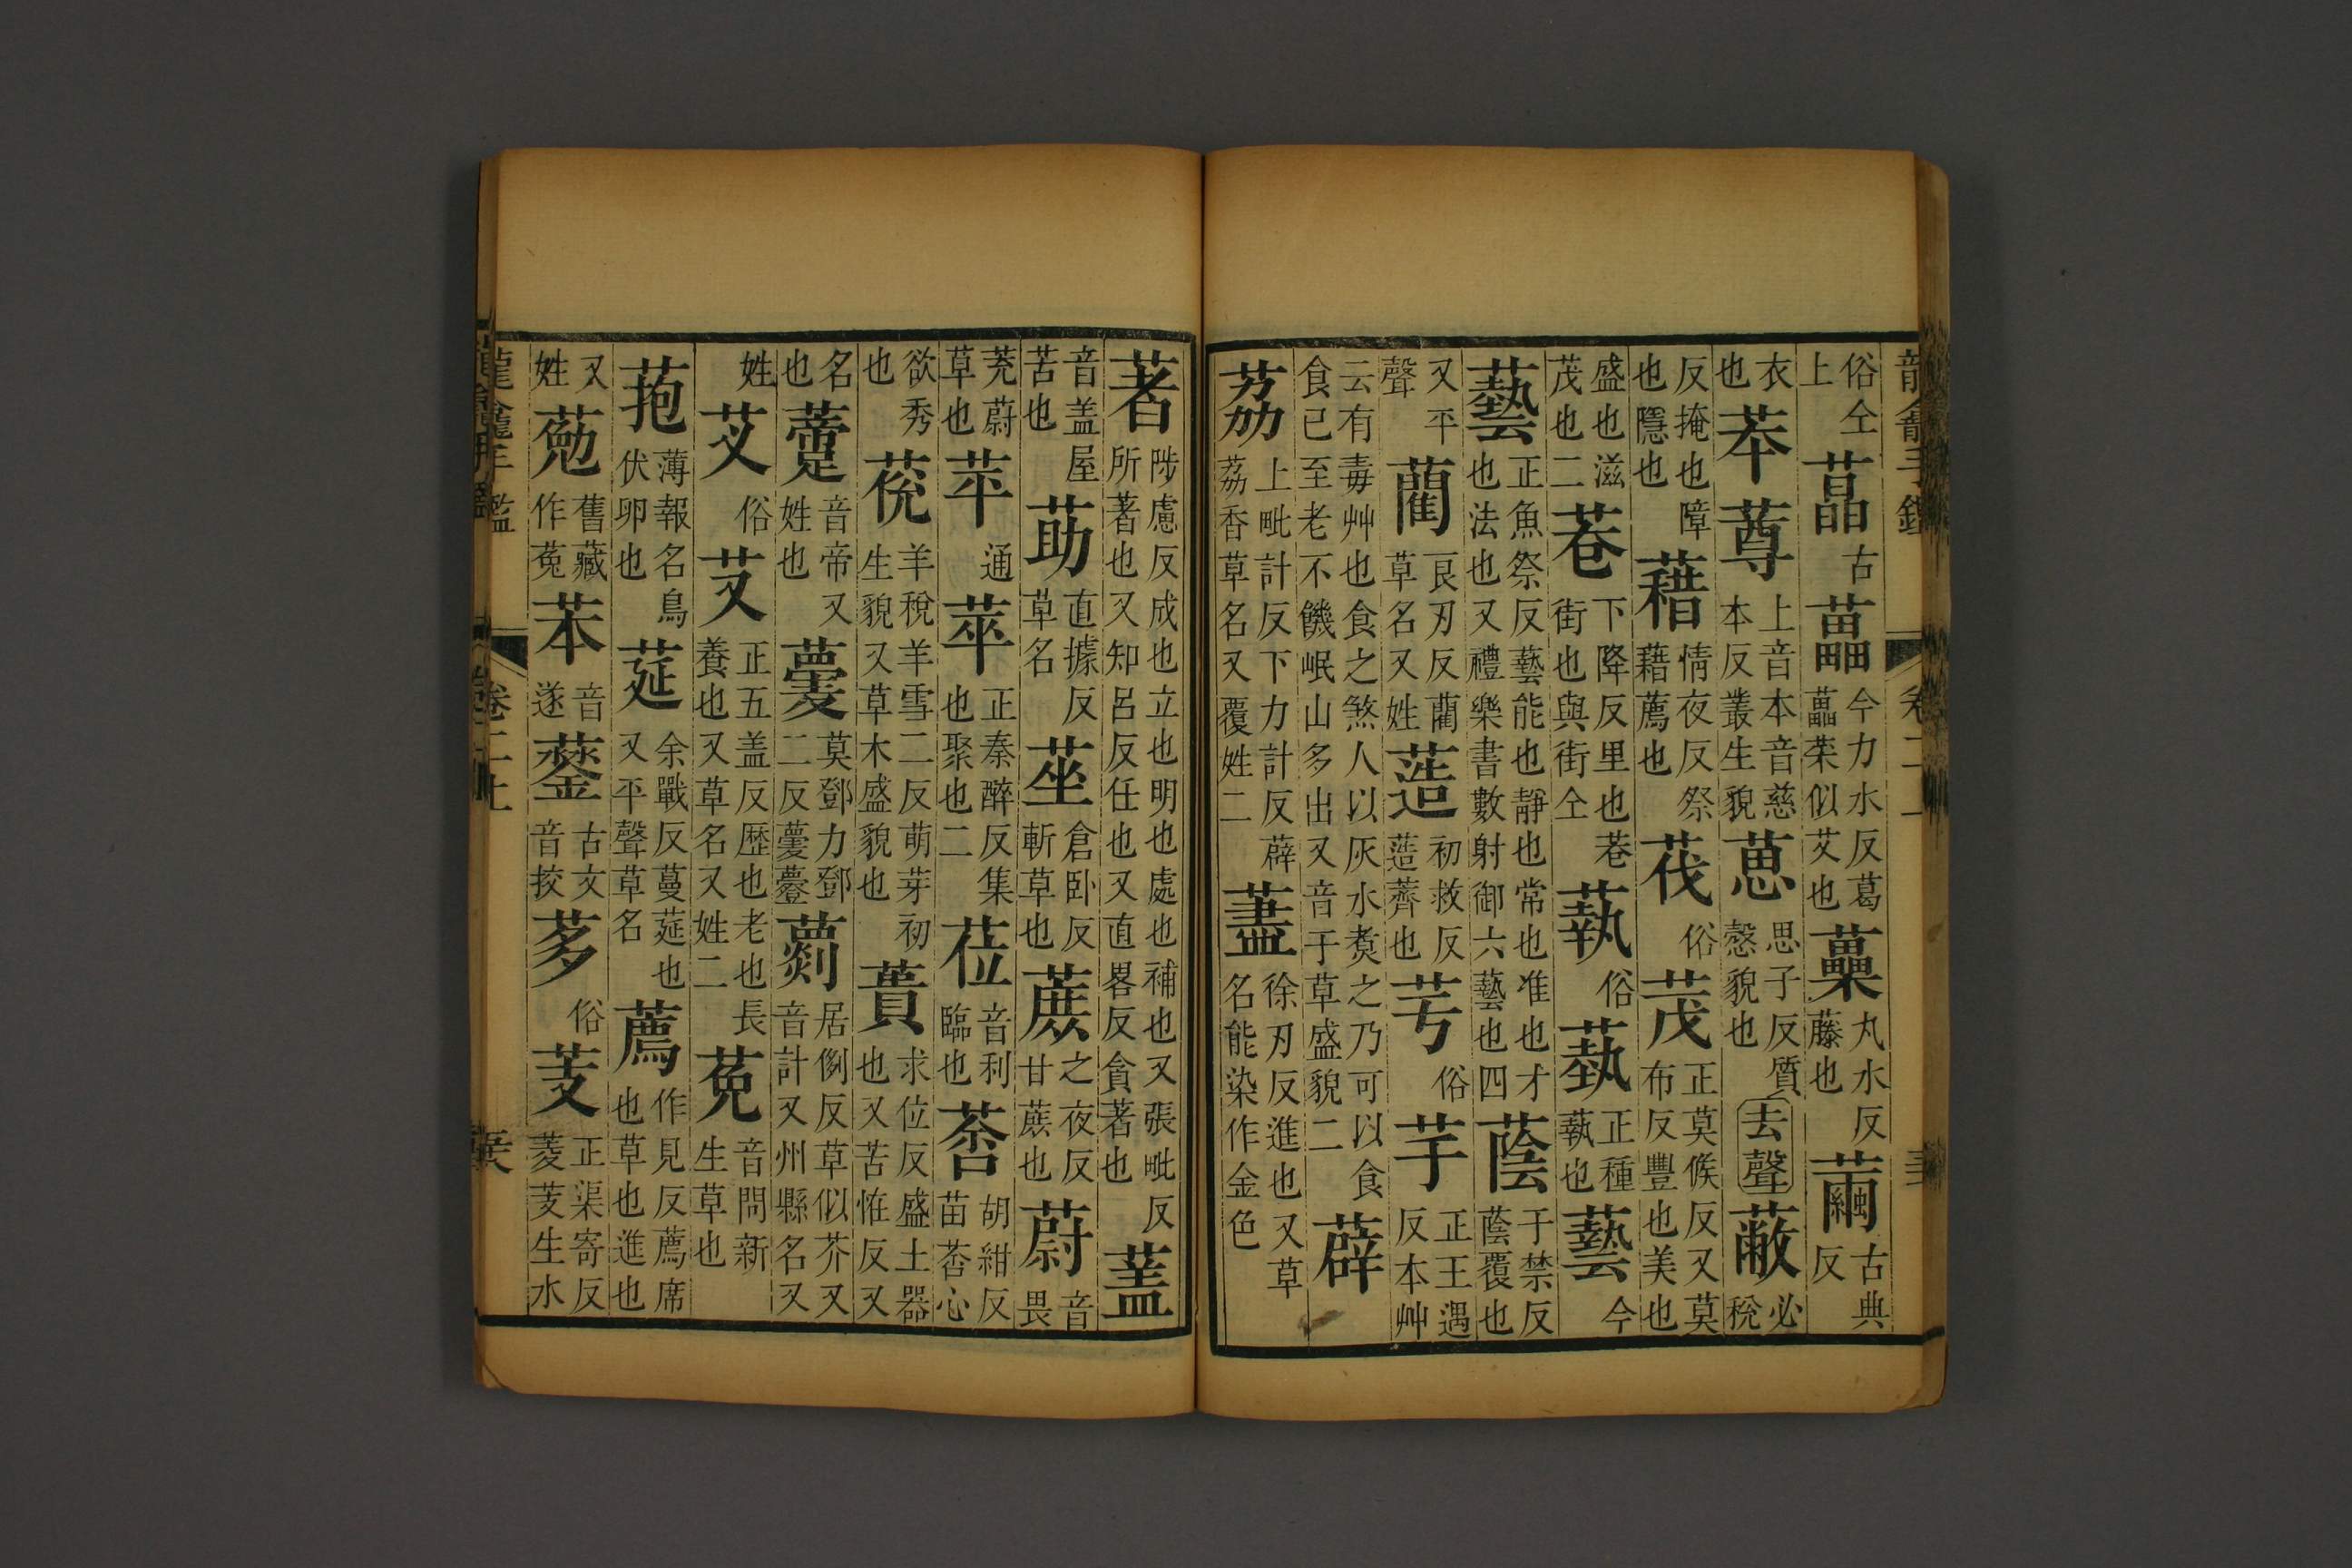 龍龕手鑑 卷二上
俗仝上 藠 古 藟 今力水反葛藟䒹似艾也 蘽 丸水反藤也 繭 古典反
衣也 苯 蓴 上音本音慈本反叢生貌 葸 思子反質愨貌也 去聲 蔽 必稅
反掩也障也隱也 藉 情夜反祭藉薦也 茷 俗 茂 正莫候反又莫布反豐也美也
盛也滋茂也二 巷 下降反里也巷街也與街仝 蓺 俗 蓺 正種蓺也 藝 今
藝 正魚祭反藝能也靜也常也准也才也法也又禮樂書數射御六藝也四 蔭 于禁反蔭覆也
又平聲 藺 良刃反藺草名又姓 簉 初救反簉薺也 芌 俗 芋 正王遇反本艸
云有毒艸也食之煞人以灰水煑之乃可以食食已至老不饑岷山多出又音于草盛貌二 薜
荔 上毗計反下力計反薜荔香草名又覆姓二 藎 徐刃反進也又草名能染作金色
著 陟慮反成也立也明也處也補也又張毗反所著也又知呂反任也又直畧反貪著也 蓋
音盖屋苫也 莇 直據反草名 莝 倉卧反斬草也 蔗 之夜反甘蔗也 蔚 音畏
茺蔚草也 苹 通 萃 正秦醉反集也聚也二 莅 音利臨也 莟 胡紺反苗莟心
欲秀也 莌 羊稅羊雪二反萌芽初生貌又草木盛貌也 蕢 求位反盛土器也又苦恠反又
名也 蔕 音帝又姓也 薆 莫鄧力鄧二反薆薹 薊 居例反草似芥又音計又州縣名又
姓 艾 俗 艾 正五盖反歷也老也長養也又草名又姓二 莬 音問新生草也
菢 薄報名鳥伏卵也 莚 余戰反蔓莚也又平聲草名 薦 作見反薦席也草也進也
又姓 葂 舊藏作菟 苯 音遂 蓥 古文音挍 茤 俗 芰 正渠寄反菱芰生水
龍龕手鑑 卷二上